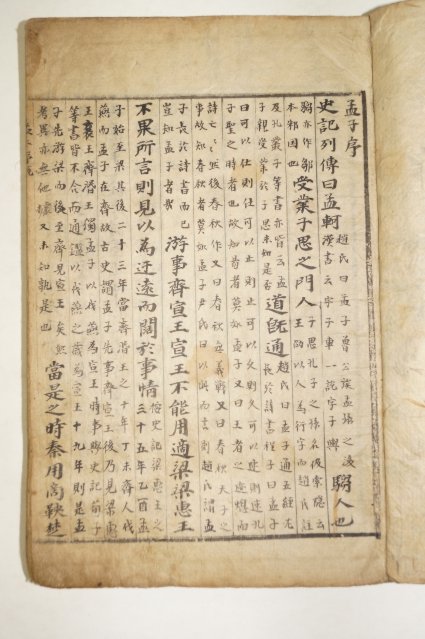 孟子序
史記列傳曰孟軻趙氏曰孟子魯公族孟孫之後漢書云字子車一說字子輿騶人也
騶亦作鄒本邾國也受業子思之門人子思孔子之孫名伋索隱云王劭以人為行字而趙氏註
及孔叢子等書亦皆云孟子親受業於子思未知是否道旣通趙氏曰孟子通五經尤長於詩書程子曰孟子
曰可以仕則仕可以止則止可以久則久可以速則速孔
子聖之時者也故知易者莫如孟子又曰王者之迹熄而
詩亡詩亡然後春秋作又曰春秋無義戰又曰春秋天子之
事故知春秋者莫如孟子尹氏曰以此而言則趙氏謂孟
子長於詩書而已豈知孟子者哉游事齊宣王宣王不能用適梁梁惠王
不果所言則見以為迂遠而闊於事情按史記梁惠王之三十五年乙酉孟
子始至梁其後二十三年當齊湣王之十年丁未齊人伐
燕而孟子在齊故古史謂孟子先事齊宣王後乃見梁惠
王襄王齊湣王獨孟子以伐燕為宣王時事與史記荀子
等書皆不合而通鑑以伐燕之歲為宣王十九年則是孟
子先游梁而後至齊見宣王矣然考異亦無他據又未知孰是也當是之時秦用商鞅楚